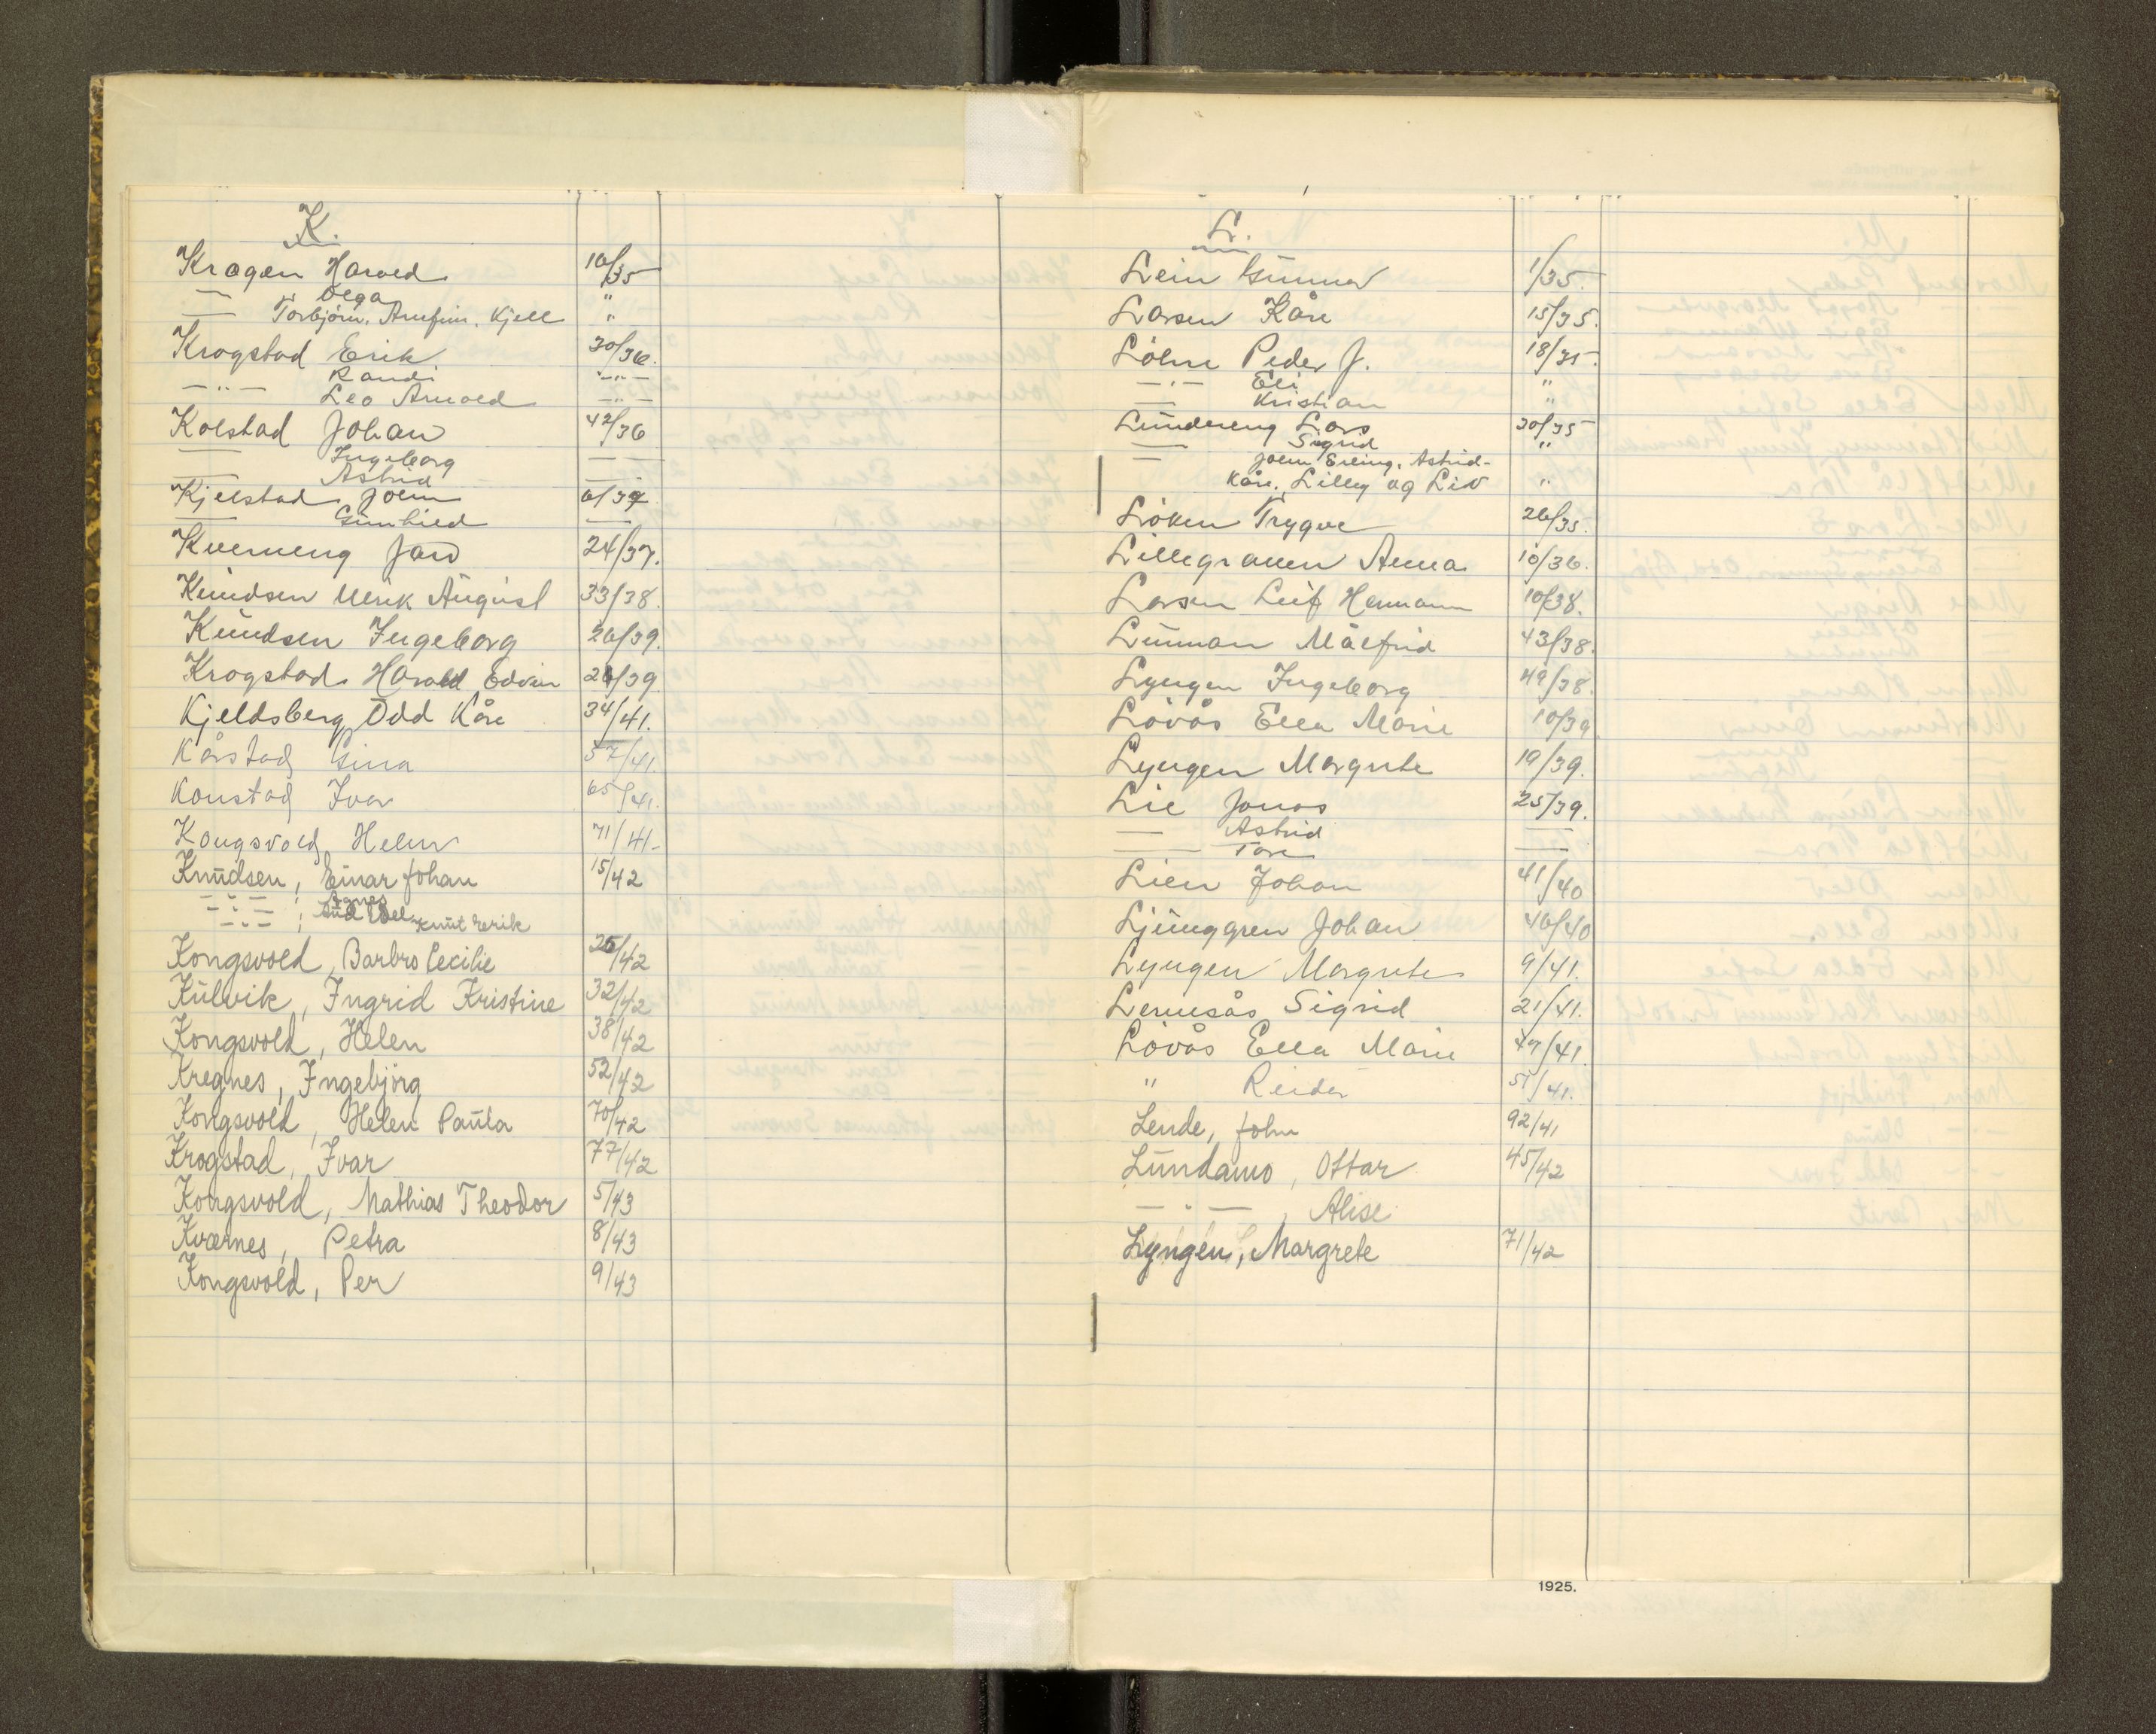 K.
Kragen Harald 10/35
— Olga "
— Torbjörn, Arnfinn, Kjell "
Krogstad Erik 30/36.
Randi —"—
—"— Leo Arnold —"—
Kolstad Johan 42/36
— Ingeborg — —
— Astrid —
Kjelstad John 6/37
— Gunhild —
Kverneng Jard 24/37.
Knudsen Ulrik August 33/38.
Knudsen Ingeborg 26/39.
Krogstad Harald Edvin 28/39
Kjeldsberg Odd Kåre 34/41.
Kårstad Gina 57/41.
Konstad Ivar 65/41.
Kongsvold Helen 71/41-
Knudsen, Einar Johan 15/42
—"— , Agnes
—"— ; Knut Erik
Kongsvold, Barbro Cecilie 25/42
Kulvik, Ingrid Kristine 32/42
Kongsvold, Helen 38/42
Kregnes, Ingebjörg 52/42
Kongsvold, Helen Paula 70/42
Krogstad, Ivar 77/42
Kongsvold, Mathias Theodor 5/43
Kværnes, Petra 8/43
Kongsvold, Per 9/43
L.
Lein Gunnar 1/35.
Larsen Kåre 15/35.
Löhre Peder J. 18/35-
—"— Eli "
— Kristian "
Lundereng Lars 30/35
— Sigrid "
— John Erling, Astrid-
Kåre, Lilly og Liv "
Löken Trygve 26/35.
Lillegraven Anna 10/36.
Larsen Leif Hermann 10/38.
Lunnan Målfrid 43/38.
Lyngen Ingeborg 49/38.
Lövås Ella Marie 10/39
Lyngen Margrete 19/39.
Lie Jonas 25/39.
— Astrid —
— Tore —
Lien Johan 41/40
Ljunggren Johan 46/40
Lyngen Margrete 9/41.
Lernesås Sigrid 21/41.
Lövås Ella Marie 47/41.
" Reidar 51/41.
Lende, John 92/41
Lundamo, Ottar 45/42
—"— , Alise
Lyngen, Margrete 71/42
1925.